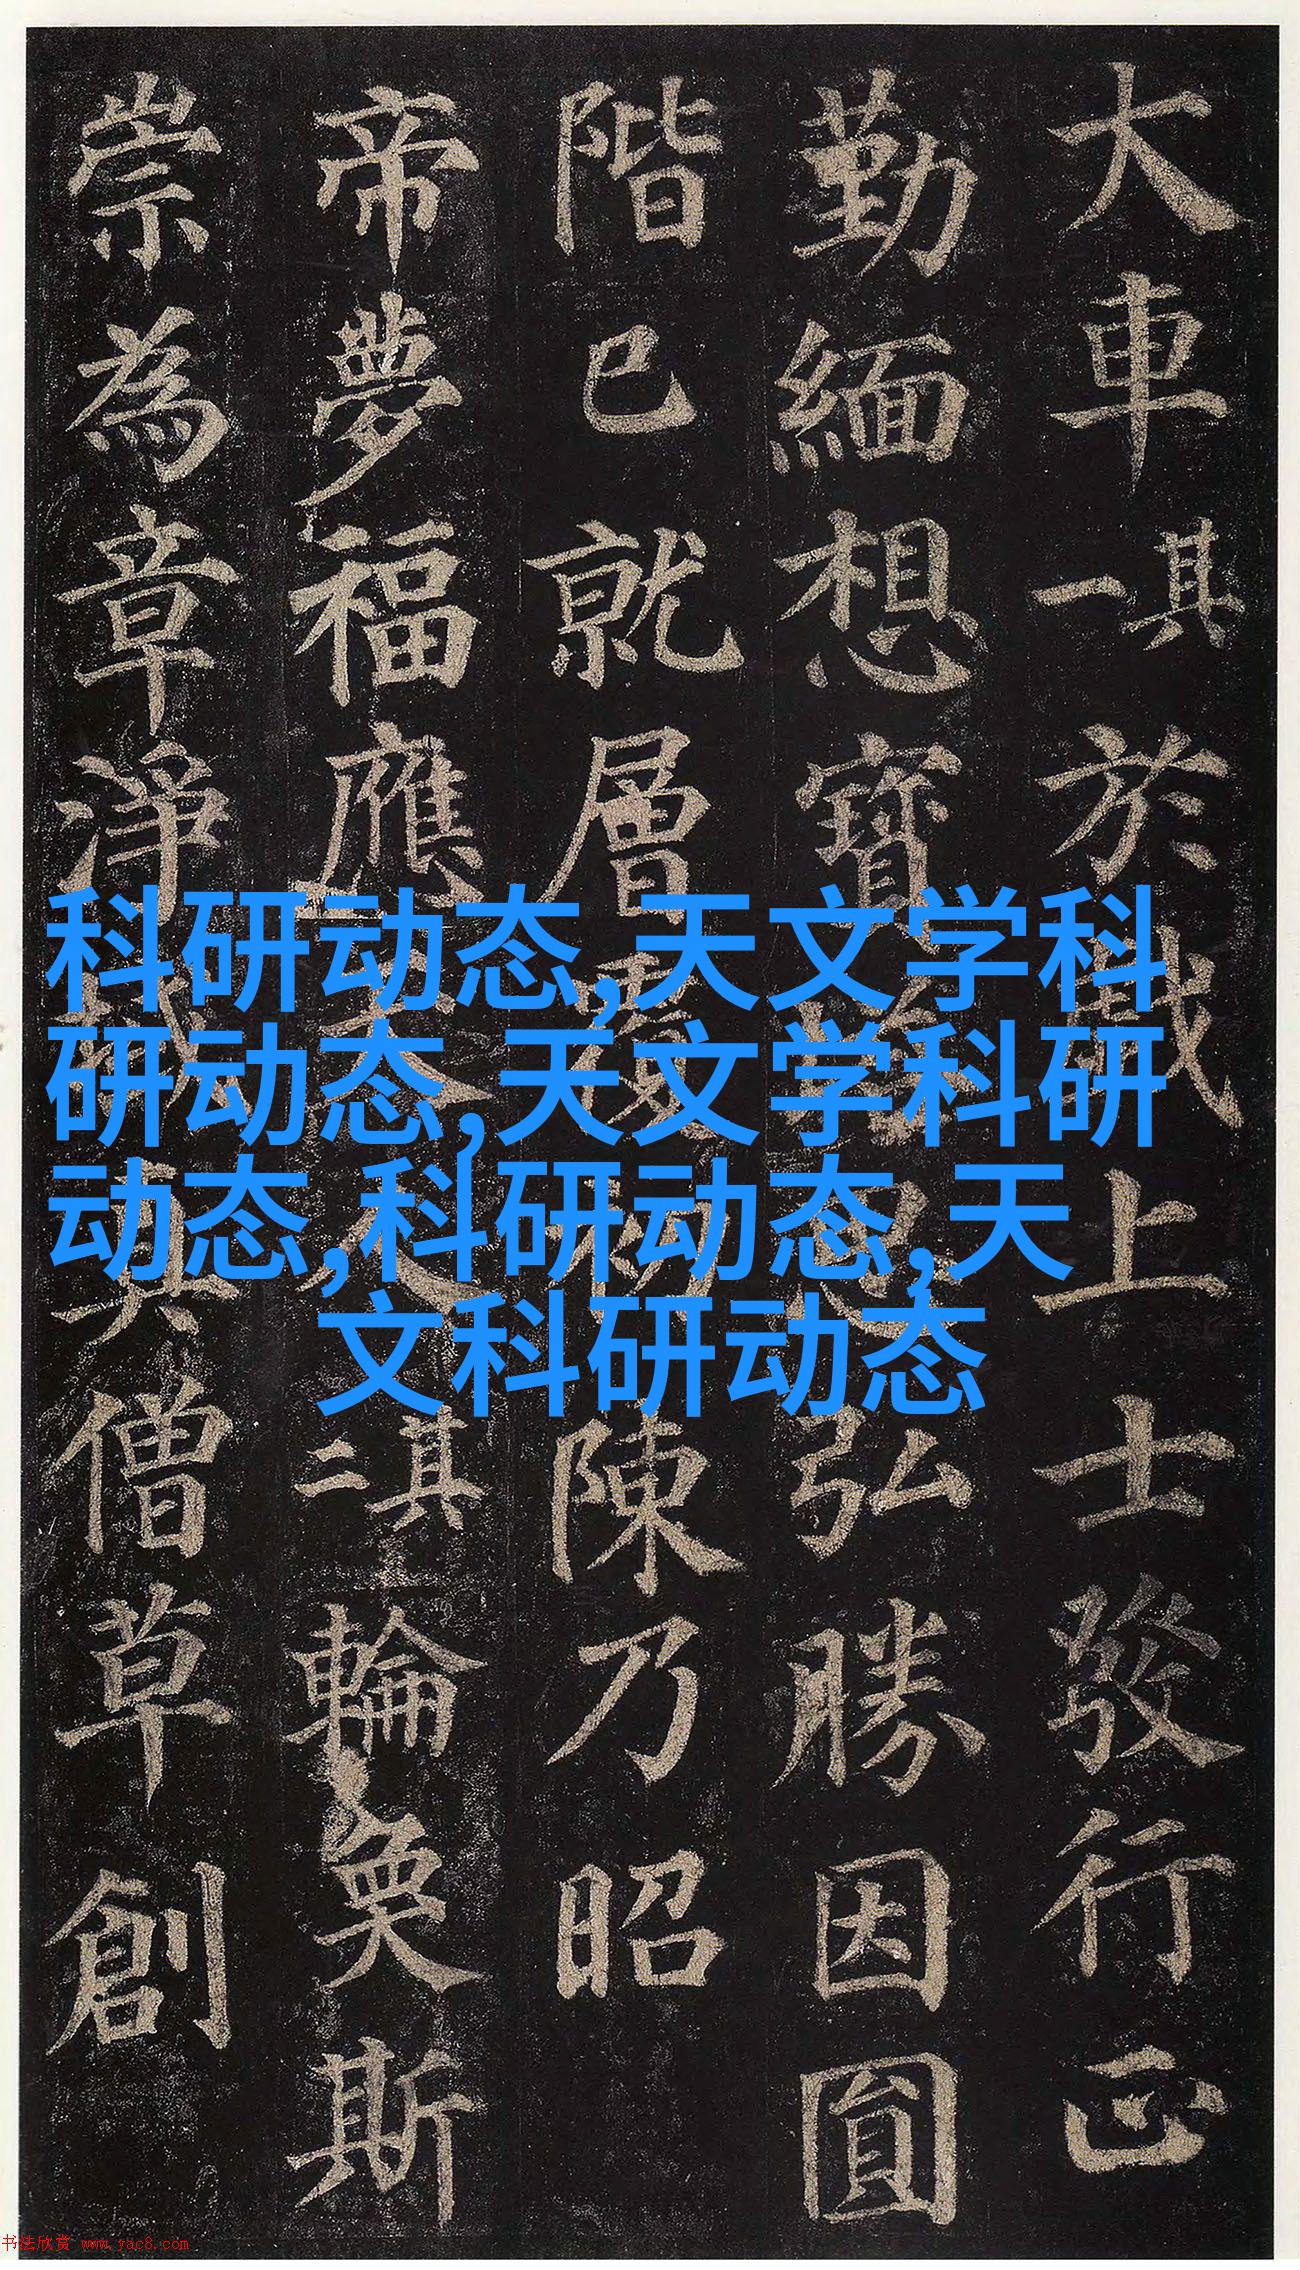 大車其一於戲上士發行正
勤緬想寶弘勝因圓
階已就層陳乃昭
帝夢福應其二輪奐斯
崇為章淨僧草創
科研动态,天文学科
研动态,天文学科研
动态,科研动态,天
文科研动态
书法欣赏 www.yac8.com